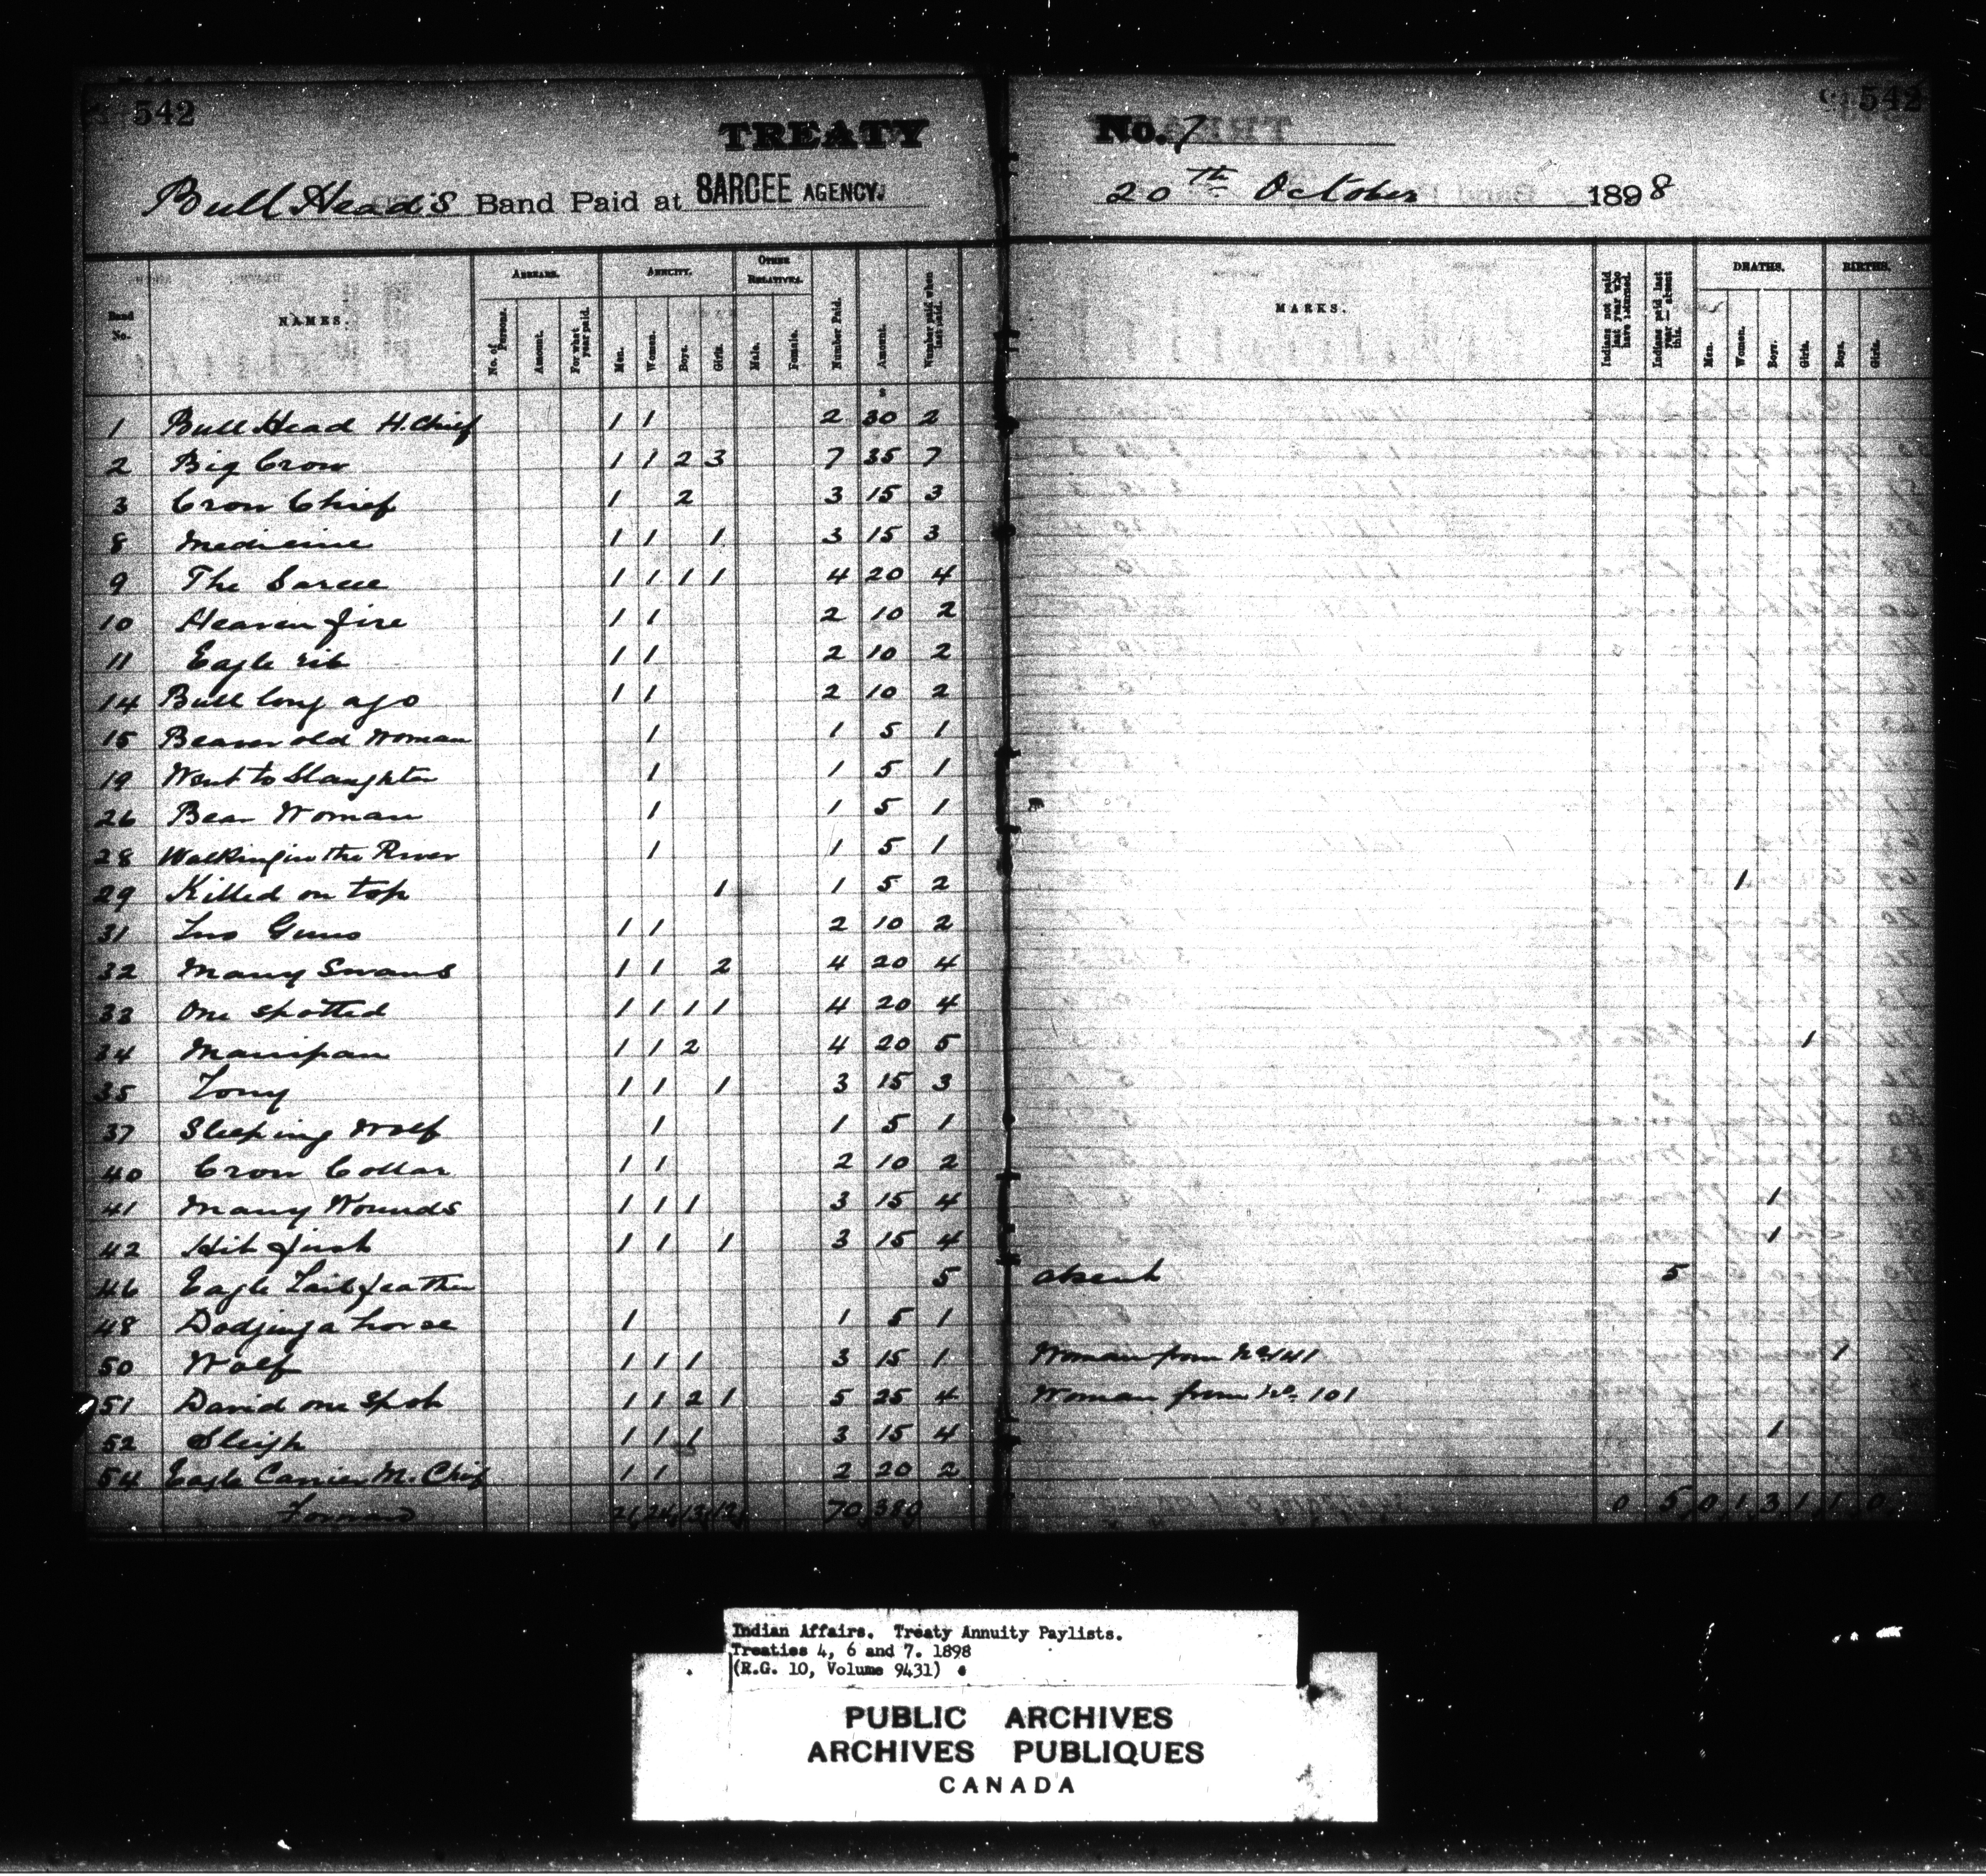 542
542
TREATY No. 7
Bull Head's Band Paid at SARCEE AGENCY. 20th October 1898
Band No. NAMES. ARREARS. No. of Persons. Amount. For what year paid. ANNUITY. Men. Women. Boys. Girls. OTHER RELATIVES. Male. Female. Number Paid. Amount. Number paid when last paid. MARKS. Indians not paid last year who have returned. Indians paid last year — absent this. DEATHS. Men. Women. Boys. Girls. BIRTHS. Boys. Girls.
1 Bull Head H. Chief 1 1 2 30 2
2 Big Crow 1 1 2 3 7 35 7
3 Crow Chief 1 2 3 15 3
8 Medicine 1 1 1 3 15 3
9 The Sarcee 1 1 1 1 4 20 4
10 Heaven fire 1 1 2 10 2
11 Eagle rib 1 1 2 10 2
14 Bull long ago 1 1 2 10 2
15 Beaver old Woman 1 1 5 1
19 Went to Slaughter 1 1 5 1
26 Bear Woman 1 1 5 1
28 Walking in the River 1 1 5 1
29 Killed on top 1 1 5 2 1
31 Two Guns 1 1 2 10 2
32 Many Swans 1 1 2 4 20 4
33 One spotted 1 1 1 1 4 20 4
34 1 1 2 4 20 5 1
35 Tony 1 1 1 3 15 3
37 Sleeping Wolf 1 1 5 1
40 Crow Collar 1 1 2 10 2
41 Many Wounds 1 1 1 3 15 4 1
42 Hit first 1 1 1 3 15 4 1
46 Eagle Tail feather 5 absent 5
48 Dodging a horse 1 1 5 1
50 Wolf 1 1 1 3 15 1 Woman from No. 141 1
51 David one Spot 1 1 2 1 5 25 4 Woman from No. 101
52 Sleigh 1 1 1 3 15 4 1
54 Eagle Carrier M. Chief 1 1 2 20 2
Forward 21 24 13 12 70 380 0 5 0 1 3 1 1 0
Indian Affairs. Treaty Annuity Paylists.
Treaties 4, 6 and 7. 1898
(R.G. 10, Volume 9431)
PUBLIC ARCHIVES
ARCHIVES PUBLIQUES
CANADA